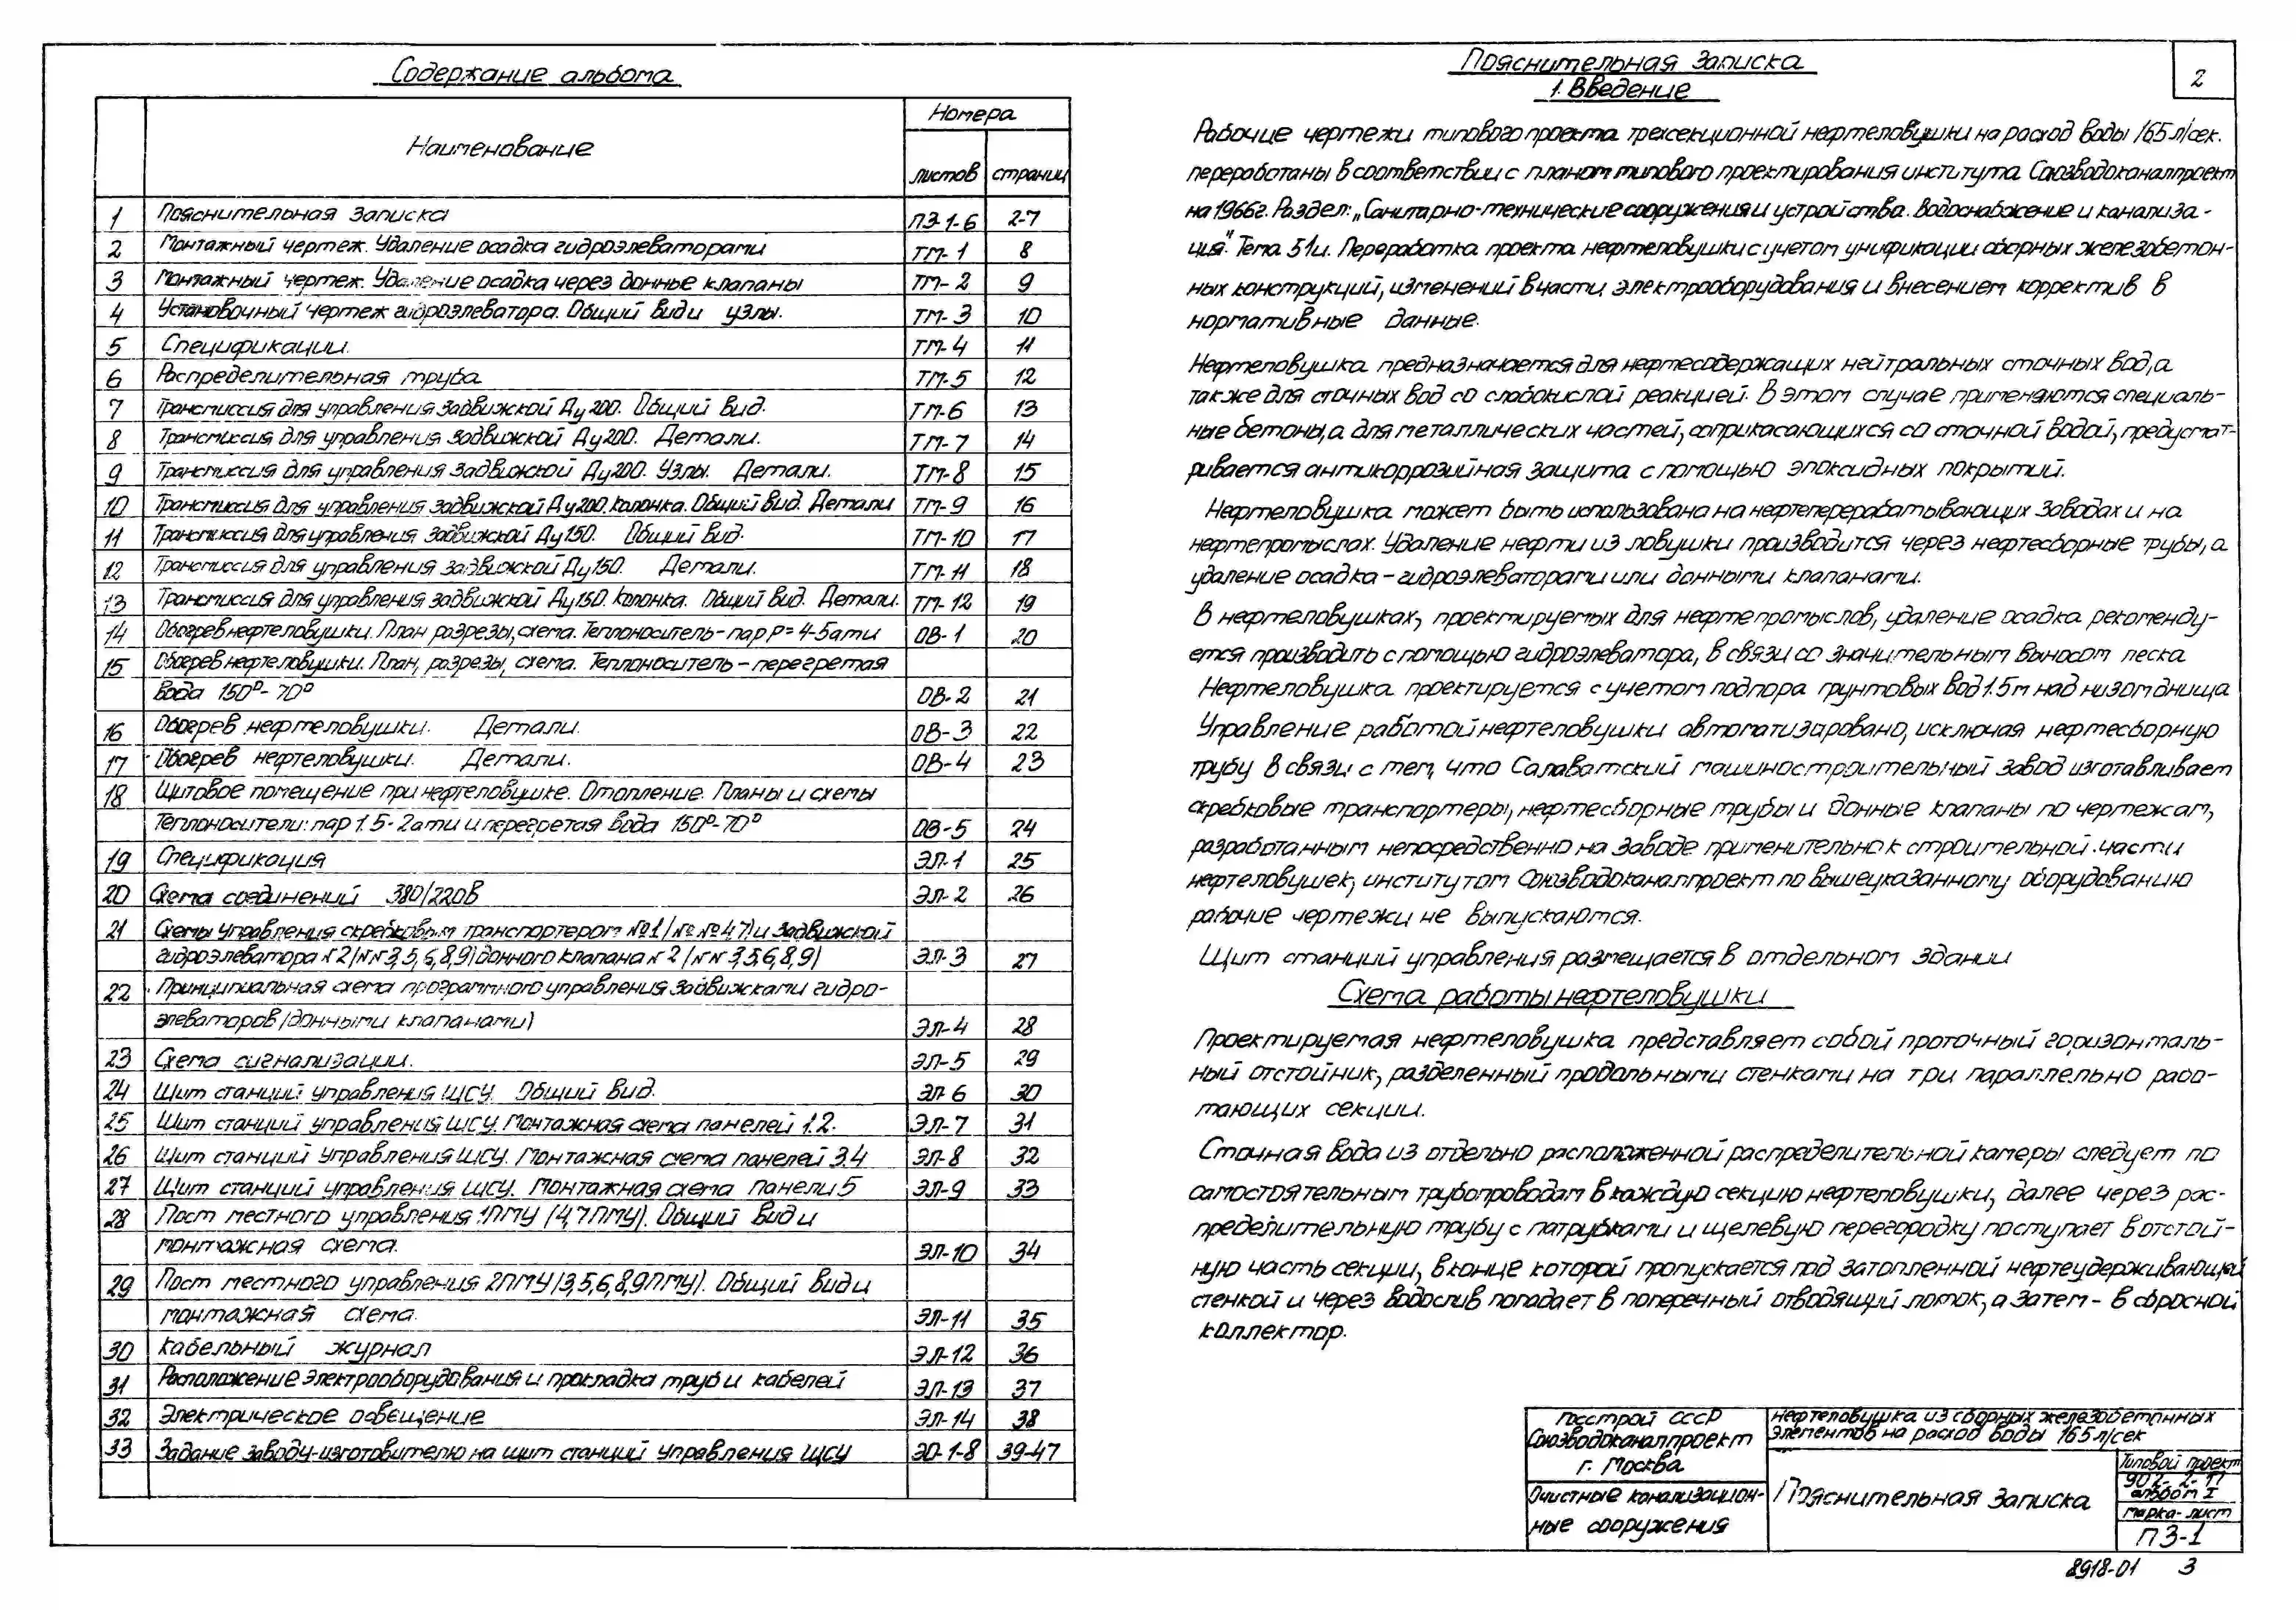 Содержание альбома
Наименование
Номера
листов страниц
1 Пояснительная записка ПЗ-1-6 2-7
2 Монтажный чертеж. Удаление осадка гидроэлеваторами ТМ-1 8
3 Монтажный чертеж. Удаление осадка через донные клапаны ТМ-2 9
4 Установочный чертеж гидроэлеватора. Общий вид и узлы. ТМ-3 10
5 Спецификации. ТМ-4 11
6 Распределительная труба ТМ-5 12
7 Трансмиссия для управления задвижкой Ду200. Общий вид. ТМ-6 13
8 Трансмиссия для управления задвижкой Ду200. Детали. ТМ-7 14
9 Трансмиссия для управления задвижкой Ду200. Узлы. Детали. ТМ-8 15
10 Трансмиссия для управления задвижкой Ду200. Колонка. Общий вид. Детали ТМ-9 16
11 Трансмиссия для управления задвижкой Ду150. Общий вид. ТМ-10 17
12 Трансмиссия для управления задвижкой Ду150. Детали. ТМ-11 18
13 Трансмиссия для управления задвижкой Ду150. Колонка. Общий вид. Детали. ТМ-12 19
14 Обогрев нефтеловушки. План разрезы, схема. Теплоноситель - пар Р=4-5ати ОВ-1 20
15 Обогрев нефтеловушки. План, разрезы, схема. Теплоноситель - перегретая
вода 150°-70° ОВ-2 21
16 Обогрев нефтеловушки. Детали. ОВ-3 22
17 Обогрев нефтеловушки. Детали. ОВ-4 23
18 Щитовое помещение при нефтеловушке. Отопление. Планы и схемы
Теплоносители: пар 1.5-2ати и перегретая вода 150°-70° ОВ-5 24
19 Спецификация ЭЛ-1 25
20 Схема соединений 380/220в ЭЛ-2 26
21 Схемы управления скребковым транспортером №1/№№4,7/и задвижкой
гидроэлеватора №2/№№3,5,6,8,9/донного клапана №2/№№3,5,6,8,9/ ЭЛ-3 27
22 Принципиальная схема программного управления задвижками гидро-
элеваторов/донными клапанами/ ЭЛ-4 28
23 Схема сигнализации. ЭЛ-5 29
24 Щит станций управления ЩСУ. Общий вид. ЭЛ-6 30
25 Щит станций управления ЩСУ. Монтажная схема панелей 1.2. ЭЛ-7 31
26 Щит станций управления ЩСУ. Монтажная схема панелей 3.4 ЭЛ-8 32
27 Щит станций управления ЩСУ. Монтажная схема панели 5 ЭЛ-9 33
28 Пост местного управления 1ПМУ/4,7ПМУ/. Общий вид и
монтажная схема. ЭЛ-10 34
29 Пост местного управления 2ПМУ/3,5,6,8,9ПМУ/. Общий вид и
монтажная схема. ЭЛ-11 35
30 Кабельный журнал ЭЛ-12 36
31 Расположение электрооборудования и прокладка труб и кабелей ЭЛ-13 37
32 Электрическое освещение ЭЛ-14 38
33 Задание заводу-изготовителю на щит станций управления ЩСУ ЭО-1-8 39-47
Пояснительная записка
1. Введение
2
Рабочие чертежи типового проекта трехсекционной нефтеловушки на расход воды 165л/сек.
переработаны в соответствии с планом типового проектирования института Союзводоканалпроект
на 1966г. Раздел: „Санитарно-технические сооружения и устройства. Водоснабжение и канализа-
ция". Тема 51и. Переработка проекта нефтеловушки с учетом унификации сборных железобетон-
ных конструкций, изменений в части электрооборудования и внесением корректив в
нормативные данные.
Нефтеловушка предназначается для нефтесодержащих нейтральных сточных вод, а
также для сточных вод со слабокислой реакцией. В этом случае применяются специаль-
ные бетоны, а для металлических частей, соприкасающихся со сточной водой, предусмат-
ривается антикоррозийная защита с помощью эпоксидных покрытий.
Нефтеловушка может быть использована на нефтеперерабатывающих заводах и на
нефтепромыслах. Удаление нефти из ловушки производится через нефтесборные трубы, а
удаление осадка - гидроэлеваторами или донными клапанами.
В нефтеловушках, проектируемых для нефтепромыслов, удаление осадка рекоменду-
ется производить с помощью гидроэлеватора, в связи со значительным выносом песка
Нефтеловушка проектируется с учетом подпора грунтовых вод 1.5м над низом днища
Управление работой нефтеловушки автоматизировано, исключая нефтесборную
трубу в связи с тем, что Салаватский машиностроительный завод изготавливает
скребковые транспортеры, нефтесборные трубы и донные клапаны по чертежам,
разработанным непосредственно на заводе применительно к строительной части
нефтеловушек, институтом Союзводоканалпроект по вышеуказанному оборудованию
рабочие чертежи не выпускаются.
Щит станций управления размещается в отдельном здании
Схема работы нефтеловушки
Проектируемая нефтеловушка представляет собой проточный горизонталь-
ный отстойник, разделенный продольными стенками на три параллельно рабо-
тающих секции.
Сточная вода из отдельно расположенной распределительной камеры следует по
самостоятельным трубопроводам в каждую секцию нефтеловушки, далее через рас-
пределительную трубу с патрубками и щелевую перегородку поступает в отстой-
ную часть секции, в конце которой пропускается под затопленной нефтеудерживающей
стенкой и через водослив попадает в поперечный отводящий лоток, а затем - в сбросной
коллектор.
Госстрой СССР
Союзводоканалпроект
г. Москва
Нефтеловушка из сборных железобетонных
элементов на расход воды 165л/сек
Очистные канализацион-
ные сооружения
Пояснительная записка
Типовой проект
902-2-17
альбом I
марка-лист
ПЗ-1
8918-01 3